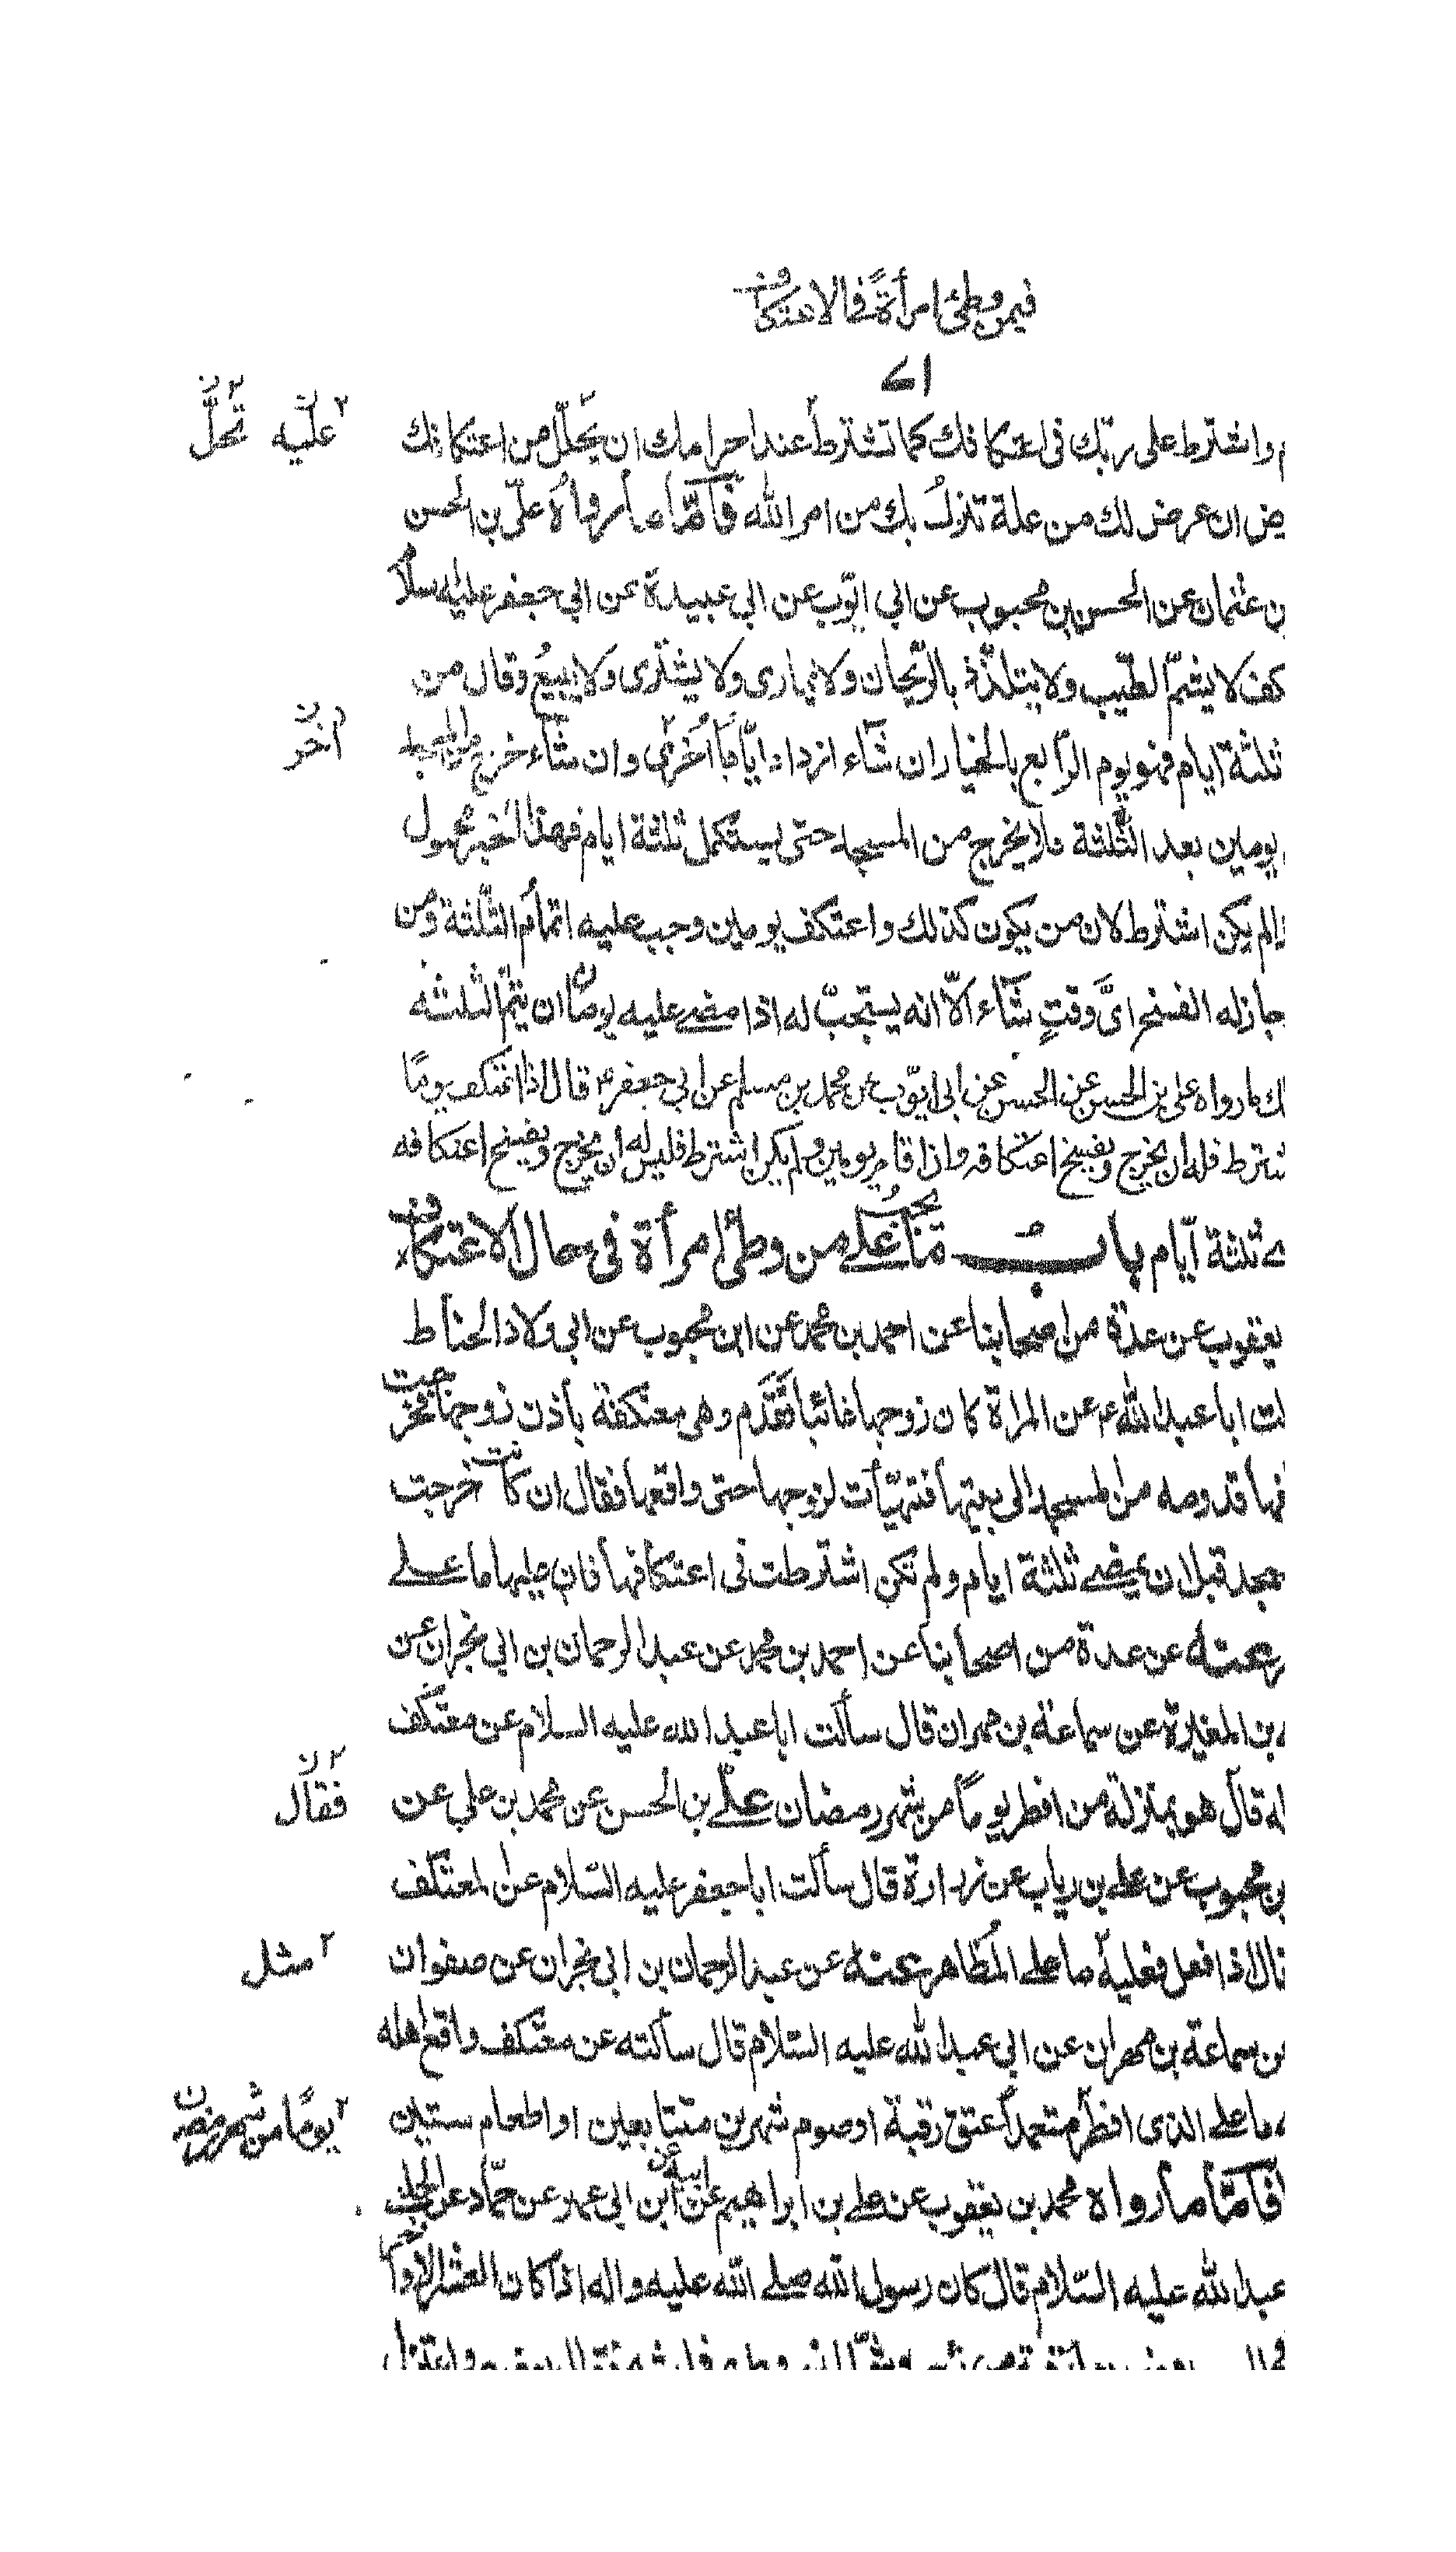 فيمن وطئ امرأة في الاعتكاف
٧١
م واشترط على ربّك في اعتكافك كما تشترط عند احرامك ان يحلّل من اعتكافك
عليه تحلّ
ض ان عرض لك من علة تنزل بك من امر الله فأمّا ما رواه علىّ بن الحسن
بن عثمان عن الحسن بن محبوب عن ابي ايّوب عن ابي عبيدة عن ابي جعفر عليه سلام
كف لا يشمّ الطّيب ولا يتلذّذ بالرّيحان ولا يمارى ولا يشترى ولا يبيع وقال من
ثلثة ايام فهو يوم الرّابع بالخيار ان شآء ازداد ايّامًا أخرى وان شآء خرج من المسجد
أخر
يومين بعد الثّلثة فلا يخرج من المسجد حتى يستكمل ثلثة ايام فهذا الخبر محمول
الم يكن اشترط لان من يكون كذلك واعتكف يومين وجب عليه اتمام الثّلثة ومن
جاز له الفسخ اىّ وقتٍ شآء الّا انه يستحبّ له اذا مضى عليه يومان ان يتمّ الثلثة
لك ما رواه على بن الحسن عن الحسن عن ابي ايّوب عن محمد بن مسلم عن ابي جعفر ع قال اذا اعتكف يومًا
شترط فله ان يخرج ويفسخ اعتكافه واذا قام يومين ولم يكن اشترط فليس له ان يخرج ويفسخ اعتكافه
ى ثلثة آيّام باب ما يجب على من وطئ امرأة في حال الاعتكاف
يعقوب عن عدة من اصحابنا عن احمد بن محمد عن ابن محبوب عن ابي ولاد الحناط
لت ابا عبد الله ع عن المراة كان زوجها غائبا فقدم وهى معتكفة بأذن زوجها فخرجت
غها قدومه من المسجد الى بيتها فتهيّأت لزوجها حتى واقعها فقال ان كانت خرجت
سجد قبل ان يمضى ثلثة ايام ولم تكن اشترطت في اعتكافها فان عليها ما على
هر عنه عن عدة من اصحابنا عن احمد بن محمد عن عبد الرحمان بن ابي نجران عن
ه بن المغيرة عن سماعة بن مهران قال سألت ابا عبد الله عليه السلام عن معتكف
له قال هو بمنزلة من افطر يومًا من شهر رمضان علىّ بن الحسن عن محمد بن على عن
فقال
بن محبوب عن على بن رياب عن زرارة قال سألت ابا جعفر عليه السّلام عن المعتكف
قال اذا فعل فعليه ما على المُظاهر عنه عن عبد الرحمان بن ابي نجران عن صفوان
مثل
عن سماعة بن مهران عن ابي عبد الله عليه السّلام قال سألته عن معتكف واقع اهله
ه ما على الذى افطر متعمداً عتق رقبة او صوم شهرين متتابعين او اطعام ستين
يومًا من شهر رمضان
فأمّا ما رواه محمد بن يعقوب عن على بن ابراهيم عن ابيه عن ابن ابي عمير عن حمّاد عن الحلبى
عبد الله عليه السّلام قال كان رسول الله صلى الله عليه واله اذا كان العشر الاواخر